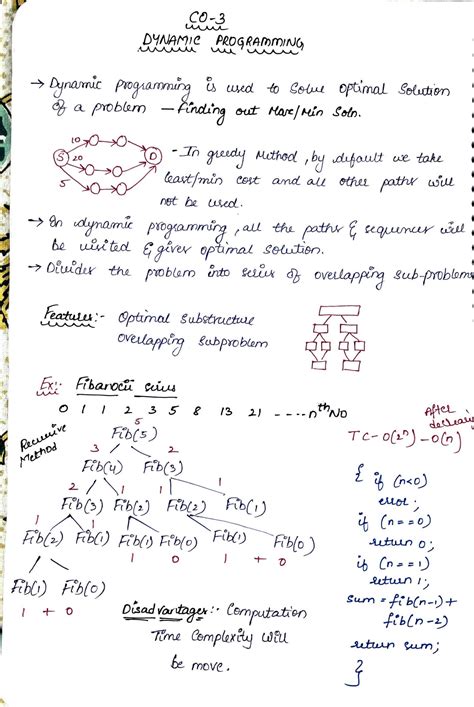 CO-3
DYNAMIC PROGRAMMING
→ Dynamic programming is used to solve optimal solution
of a problem - Finding out Max/Min Soln.
10
S 20 D
5
- In greedy method, by default we take
least/min cost and all other paths will
not be used.
→ In dynamic programming, all the paths & sequences will
be visited & gives optimal solution.
→ Divides the problem into series of overlapping sub-problems
Features:- Optimal substructure
overlapping subproblem
Ex:- Fibanocii series
0 1 1 2 3 5 8 13 21 ----- nth No
Recursive
Method
5
Fib(5)
3 2
Fib(4) Fib(3)
2 1 1 1
Fib(3) Fib(2) Fib(2) Fib(1)
1 1 1 0 1 + 0
Fib(2) Fib(1) Fib(1) Fib(0) Fib(0)
Fib(1) Fib(0)
1 + 0
After
TC - O(2ⁿ) - O(n)
{ if (n<0)
error;
if (n==0)
return 0;
if (n==1)
return 1;
sum = fib(n-1) +
fib(n-2)
return sum;
}
Disadvantages:- Computation
Time Complexity will
be move.